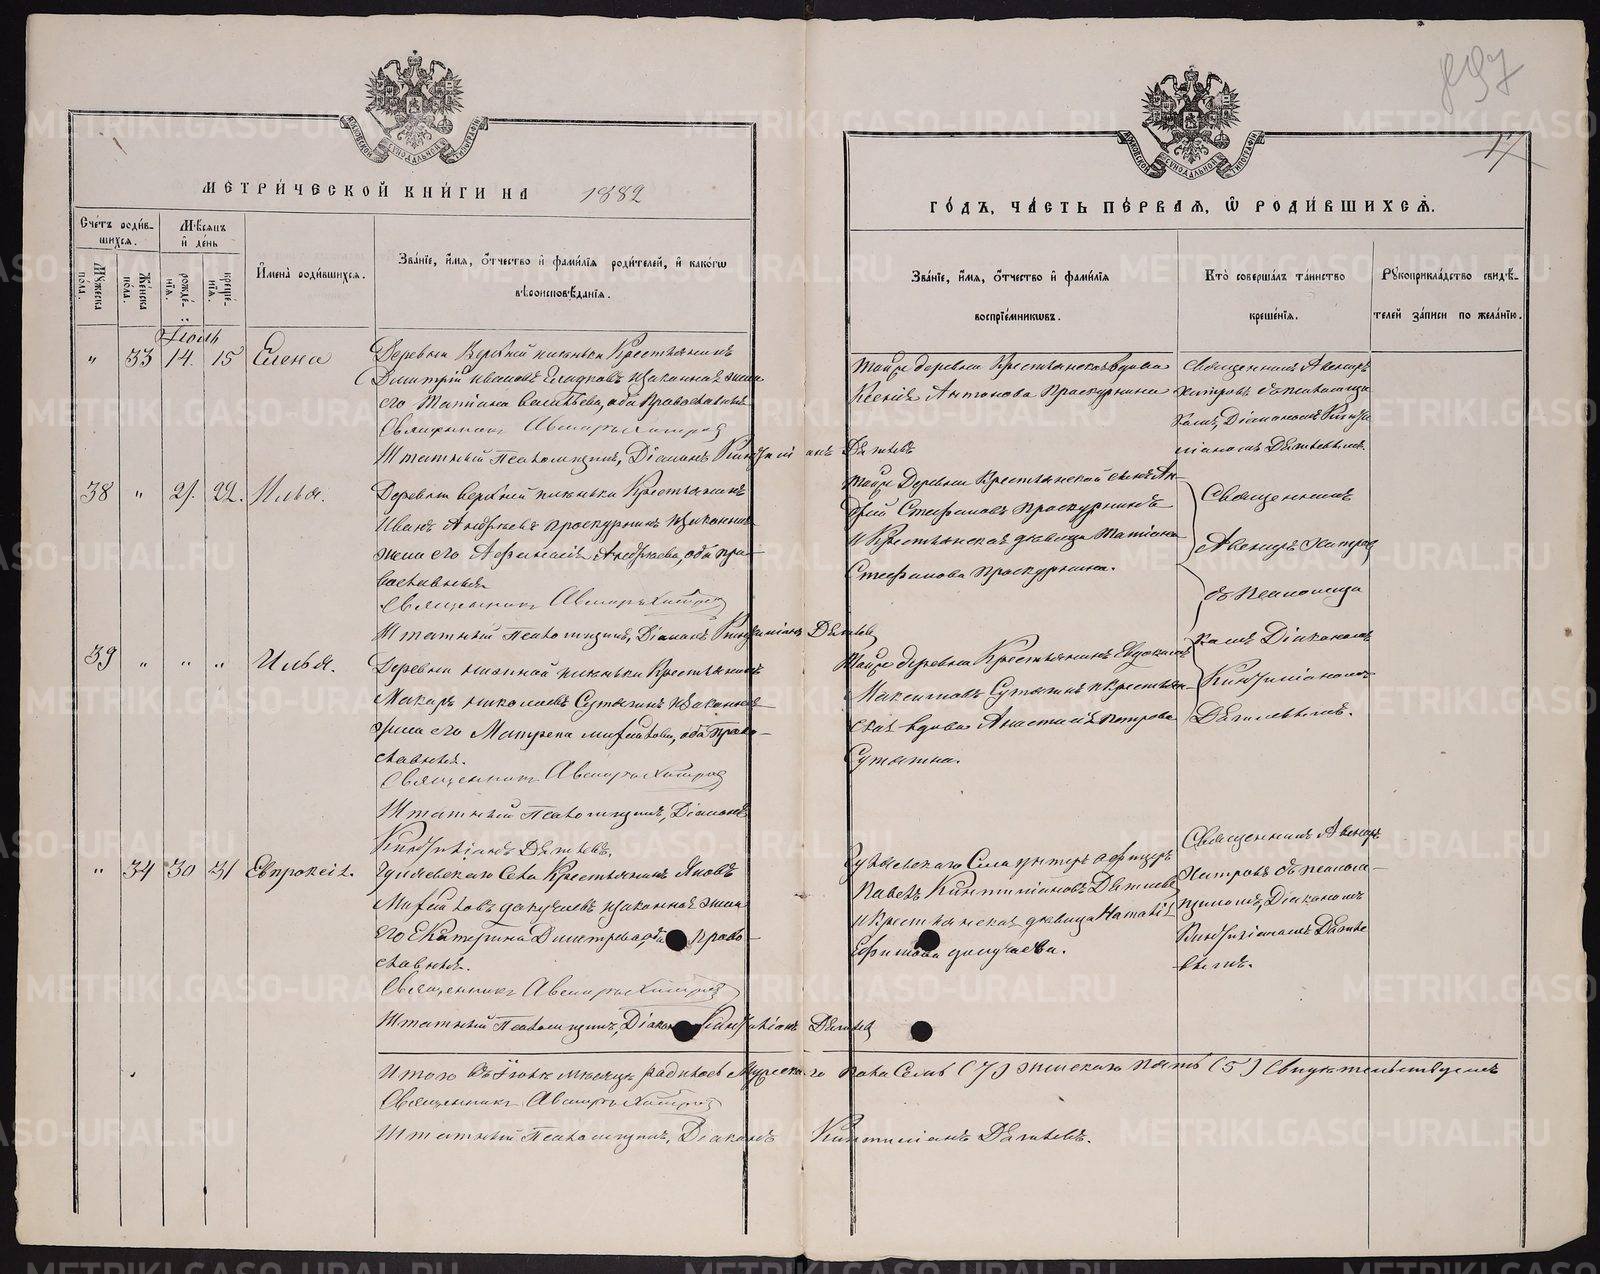 МЕТРИ́ЧЕСКОЙ КНИ́ГИ НА 1882
ГО́ДЪ, ЧА́СТЬ ПЕ́РВАЯ, Ѿ РОДИ́ВШИХСѦ.
17
Сче́тъ роди́в-
шихся.
Мѣ́сяцъ
и̂ де́нь
Му́жеска
по́ла.
Же́нска
по́ла.
рожде́-
нїя.
креще́-
нїя.
И҆мена̀ роди́вшихся.
Зва́нїе, и҆́мя, ѻ҆́тчество и҆ фами́лїя роди́телей, и҆ како́гѡ
вѣроисповѣ́данїя.
Зва́нїе, и҆́мя, ѻ҆́тчество и҆ фами́лїя
воспрїе́мникѡвъ.
Кто̀ соверша́лъ та́инство
креще́нїя.
Рꙋкоприкла́дство свидѣ́-
телей за́писи по жела́нїю.
Іюль
" 33 14. 15 Елена
Деревни Верхней Крестьянинъ
Дмитрій Ивановъ Гладковъ и законная жена
его Татіана Васильева, оба Православные
Священникъ Авениръ Хитровъ
Штатный Псаломщикъ, Діаконъ Кинтиліанъ Дягилевъ
Той же деревни Крестьянская вдова
Ксенія Антонова Проскурнина
Священникъ Авениръ
Хитровъ съ псаломщи
комъ, Діакономъ Кинти
ліаномъ Дягилевымъ.
38 " 21. 22. Илья.
Деревни Верхней Крестьянинъ
Иванъ Андреевъ Проскурнинъ и законная
жена его Андреева, оба пра-
вославные.
Священникъ Авениръ Хитровъ
Штатный Псаломщикъ, Діаконъ Кинтиліанъ Дягилевъ
Той же Деревни Крестьянской сынъ Ан-
дрей Стефановъ Проскурнинъ
и Крестьянская девица Татіана
Стефанова Проскурнина.
Священникъ
Авениръ Хитровъ
съ Псаломщи
комъ Діакономъ
Кинтиліаномъ
Дягилевымъ.
39 " " " Илья.
Деревни Крестьянинъ
Макаръ Николаевъ Сутягинъ и законная
жена его Матрена Михайлова, оба право-
славные.
Священникъ Авениръ Хитровъ
Штатный Псаломщикъ, Діаконъ
Кинтиліанъ Дягилевъ.
Той же деревни Крестьянинъ Евдокимъ
Максимовъ Сутягинъ и крестьян-
ская вдова Анастасія Петрова
Сутягина.
" 34 30 31 Евпраксія.
Села Крестьянинъ Яковъ
Михайловъ и законная жена
его Екатерина Дмитрева, оба Право-
славные.
Священникъ Авениръ Хитровъ
Штатный Псаломщикъ, Діаконъ Кинтиліанъ Дягилевъ
Села унтеръ офицеръ
Павелъ Кинтиліановъ Дягилевъ
и Крестьянская девица Наталія
Ефимова
Священникъ Авениръ
Хитровъ съ псалом-
щикомъ, Діакономъ
Кинтиліаномъ Дягиле
вымъ.
Итого въ Іюле месяце родилось Мужеского пола Семь (7) женского Пять (5)
Священникъ Авениръ Хитровъ
Штатный Псаломщикъ, Діаконъ Кинтиліанъ Дягилевъ.